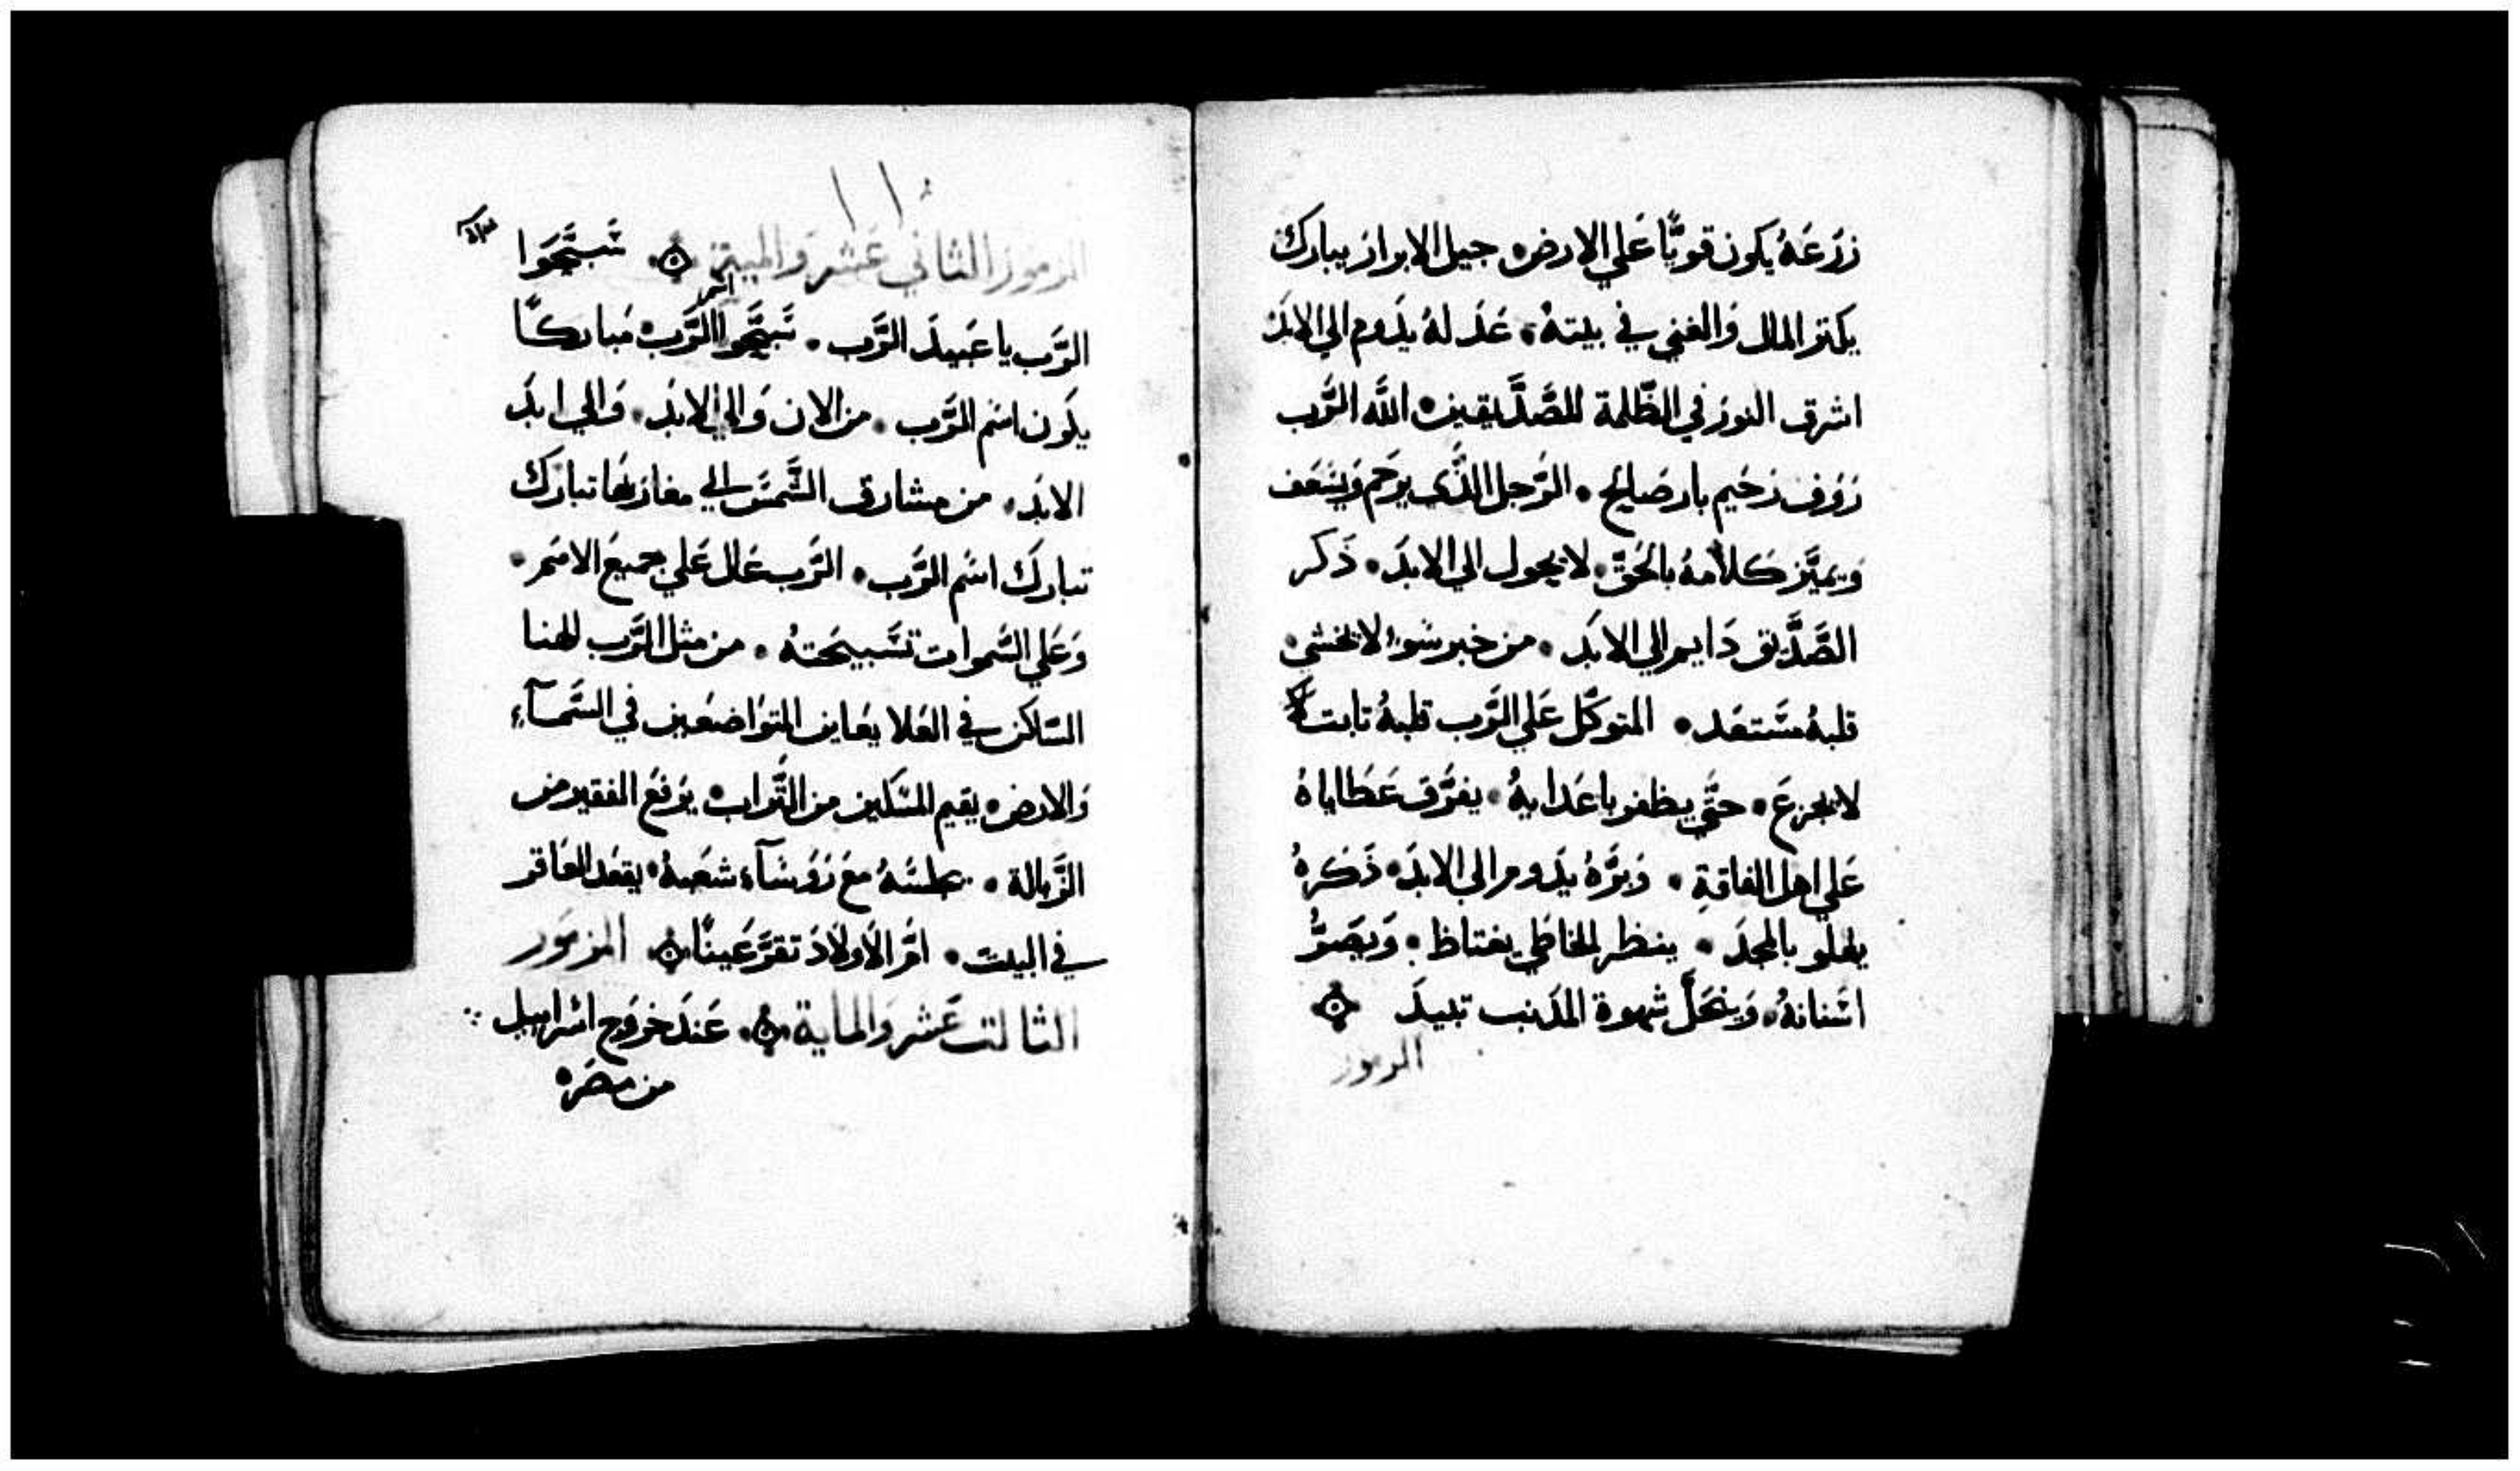 زرَعَهُ يكون قويًّا عَلي الارض • جيل الابرار يبارك
يكتر المال وَالغني في بيته • عَدله يدَوم الي الابدَ
اشرق النور في الظّلمة للصَّدَّيقين • اللَّه الرَّب
رَوَوف رَحَيم بار صَالح • الرَّجل الذَّي يرحَم وَيسَعَف
وَيميَّز كلاَمهُ بالحَق • لا يحول الي الابدَ • ذَكر
الصَّدَّيق دَايم الي الابدَ • من خبر سَوا لا يخشي •
قلبهُ مسَتعَد • المتوكّل عَلي الرَّب قلبهُ تابت
لا يجزعَ • حتَّي يظفر باعَدايهُ • يفرَّق عَطَاياهُ
عَلي اهل الفاقةِ • وَبرَّهُ يدَوم الي الابدَ • ذَكرهُ
يعلو بالمجدَ • ينظر الخاطي يغتاظ • وَيصَرُّ
اسَنانهُ • وَينحَلَّ شهوة المدنب تبيدَ
المزمور
١١١
المزمور الثاني عَشر وَالميَة • سَبَّحَوا
الرَّب يا عَبيدَ الرَّب • سَبَّحَوا اسم الرَّب • مَباركًا
يكَون اسَم الرَّب • من الان وَالي الابدَ • وَالي ابدَ
الابدَ • من مشارق الشَّمسَ الي مغاربَها تباركَ
تباركَ اسَم الرَّب • الرَّب عَال عَلي جميعَ الامَم •
وَعَلي السَّموات تسَبيحَتهُ • من مثل الرَّب الهنا
السَاكن في العَلا يعَاين المتوَاضعَين في السَّمآء
وَالارض • يقيم المسَكين من التَّراب • يرَفعَ الفقير من
الزَّبالة • يجلسَهُ معَ رَوَسَآء شعَبهُ • يقعَد العَاقر
في البيت • امَّ الاَولاَدَ تقرَّ عَينًا • المزمَور
الثالت عَشر وَالماية • عَندَ خرَوَج اسَراييل
من مصَر •